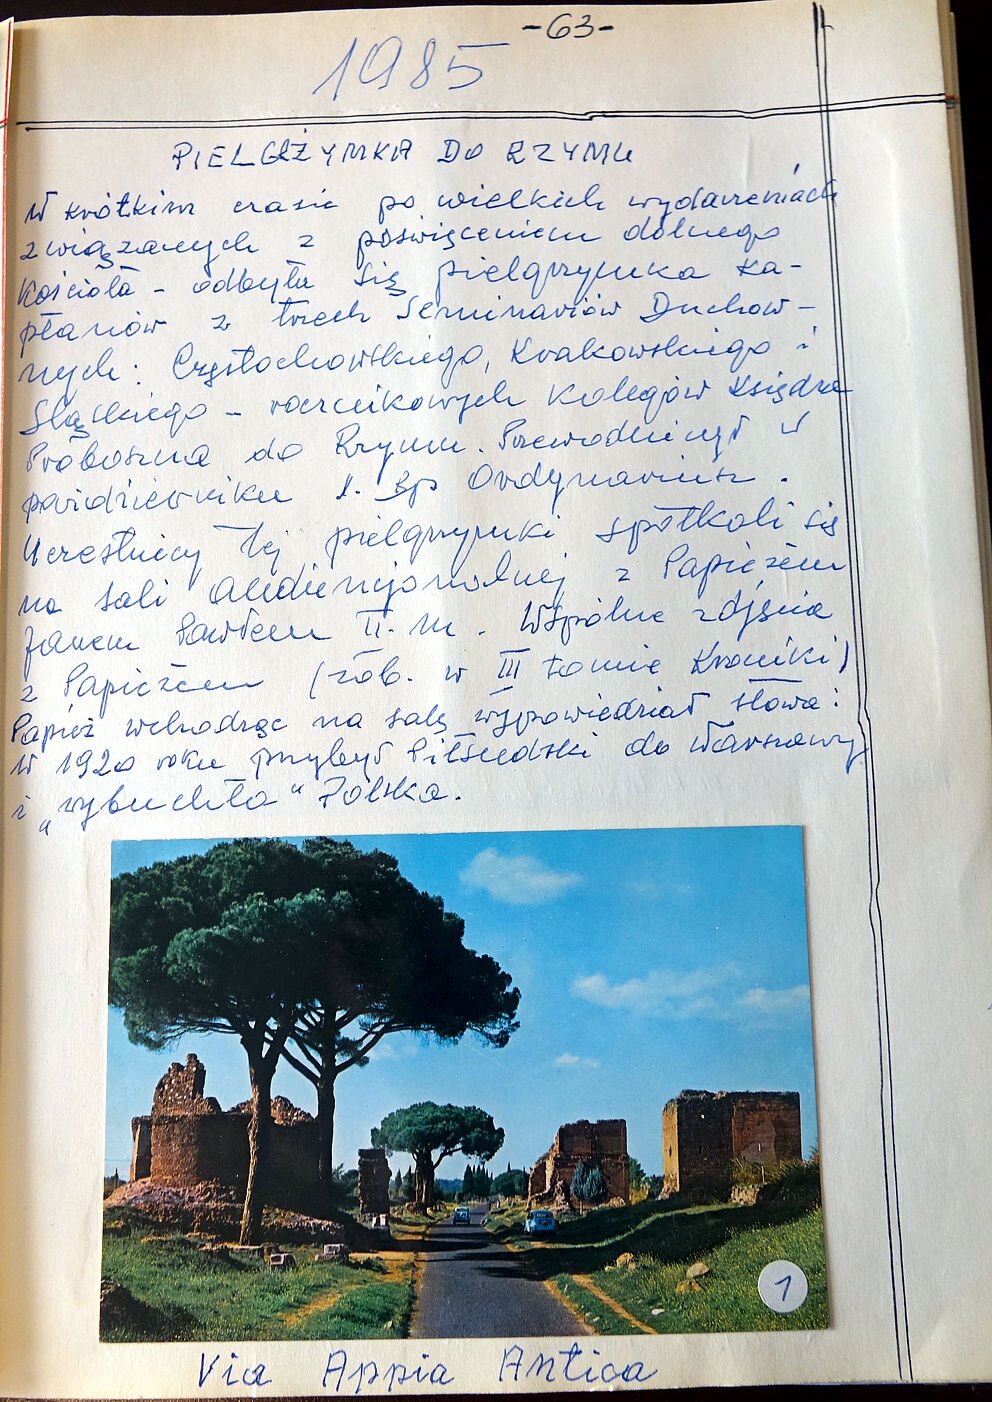 -63-
1985
PIELGRZYMKA DO RZYMU
W krótkim czasie po wielkich wydarzeniach
związanych z poświęceniem dolnego
Kościoła - odbyła się pielgrzymka ka-
płanów z trzech Seminariów Duchow-
nych: Częstochowskiego, Krakowskiego i
Śląskiego - rocznikowych Kolegów Księdza
Proboszcza do Rzymu. Przewodniczył w
październiku Bp Ordynariusz.
Uczestnicy tej pielgrzymki spotkali się
na sali audiencjonalnej z Papieżem
Janem Pawłem II. Wspólne zdjęcia
z Papieżem (zob. w III tomie Kroniki)
Papież wchodząc na salę wypowiedział słowa:
W 1920 roku przybył Piłsudski do Warszawy
i „wybuchła" Polska.
1
Via Appia Antica